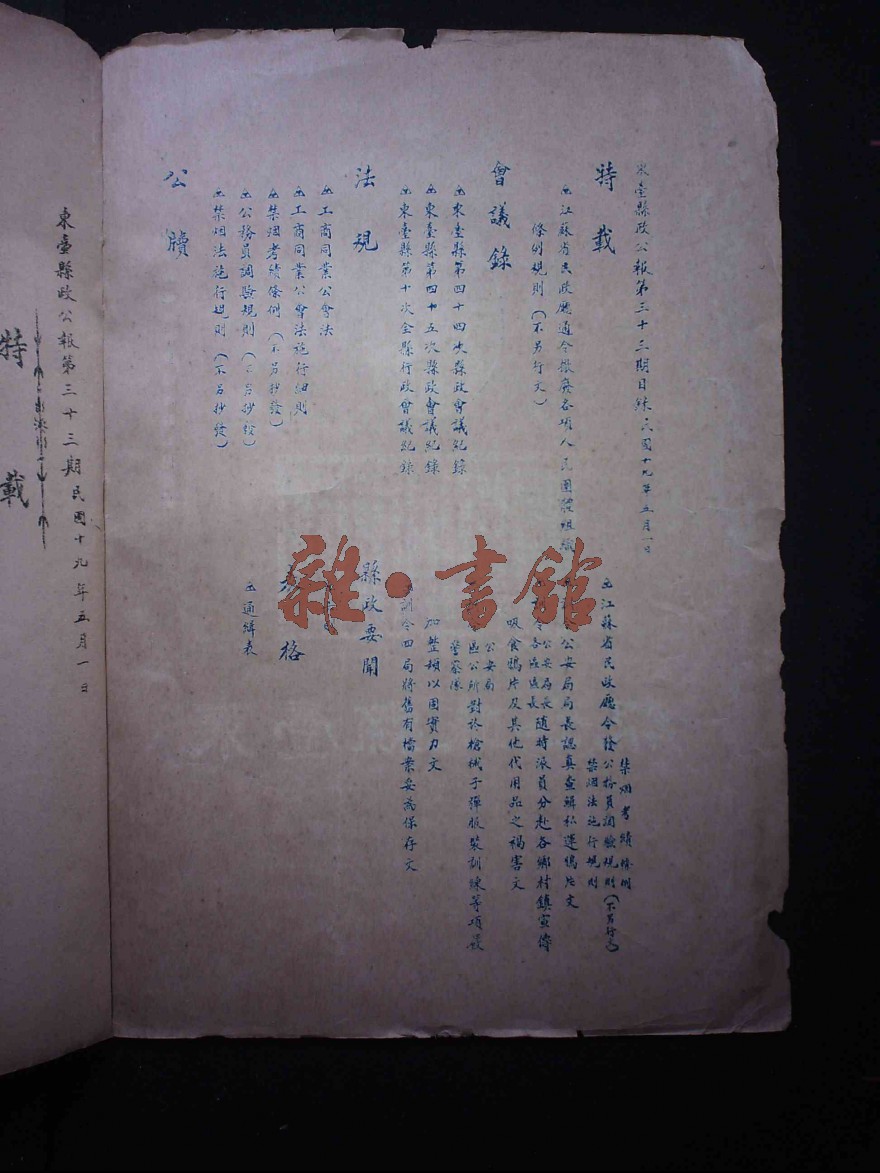 東臺縣政公報第三十三期目錄 民國十九年五月一日
特載
江蘇省民政廳通令撤廢各項人民團體組織
條例規則（不另行文）
會議錄
東臺縣第四十四次縣政會議紀錄
東臺縣第四十五次縣政會議紀錄
東臺縣第十次全縣行政會議紀錄
法規
工商同業公會法
工商同業公會法施行細則
禁烟考績條例（不另抄發）
公務員調驗規則（不另抄發）
禁烟法施行規則（不另抄發）
公牘
禁烟考績條例
江蘇省民政廳令發公務員調驗規則（不另行文）
禁烟法施行規則
公安局局長認真查緝私運鴉片文
令公安局長各區區長隨時派員分赴各鄉村鎮宣傳
吸食鴉片及其他代用品之禍害文
公安局
區公所對於槍械子彈服裝訓練等項嚴
警察隊
加整頓以固實力文
訓令四局將舊有檔案妥為保存文
縣政要聞
表格
通緝表
雜·書館
東臺縣政公報第三十三期 民國十九年五月一日
特載